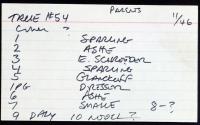 PARENTS
TRUE #54 11/46
COVER ?
1 SPARLING
2 ASHE
3 E. SCHROEDER
4 SPARLING
5
1PG
ASHE
7 SMALE 8-?
9 DALY 10 ?